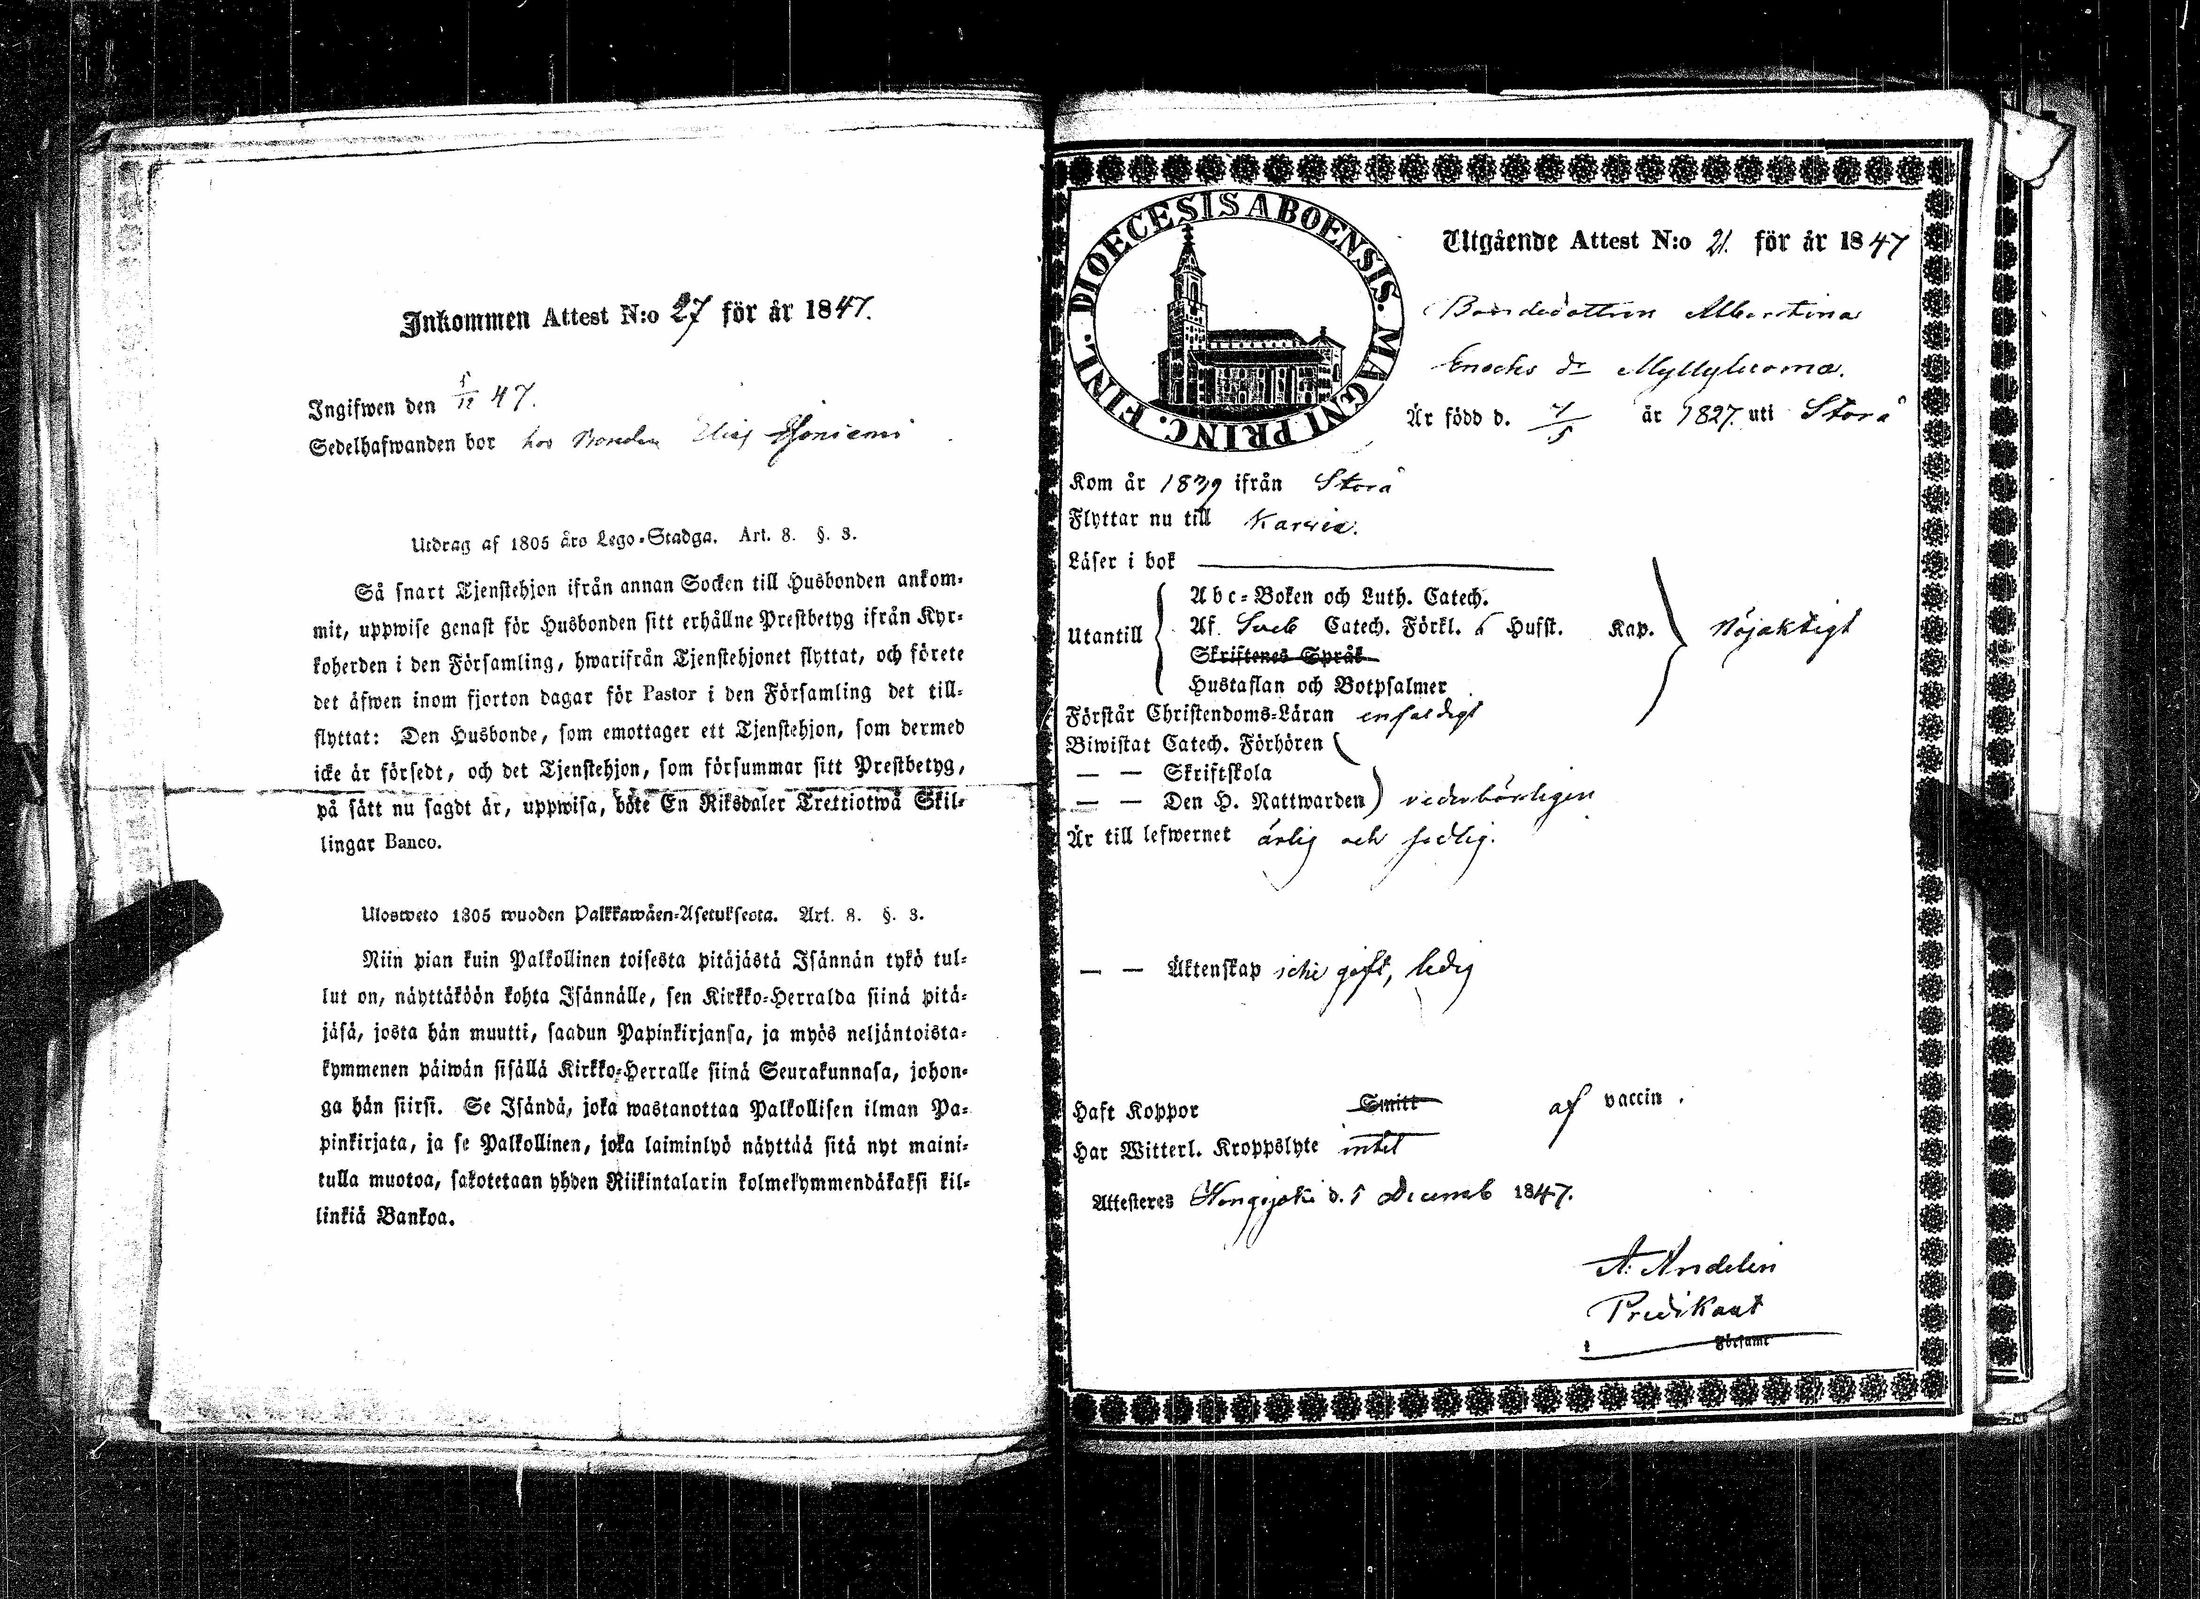 Inkommen Attest N:o 27 för år 1847.
Ingifwen den 5/12 47.
Sedelhafwanden bor hos Bonden
Utdrag af 1805 års Lego-Stadga. Art. 8. §. 3.
Så snart Tjenstehjon ifrån annan Socken till Husbonden ankom-
mit, uppwise genast för Husbonden sitt erhållne Prestbetyg ifrån Kyr-
koherden i den Församling, hwarifrån Tjenstehjonet flyttat, och förete
det äfwen inom fjorton dagar för Pastor i den Församling det till-
flyttat: Den Husbonde, som emottager ett Tjenstehjon, som dermed
icke är försedt, och det Tjenstehjon, som försummar sitt Prestbetyg,
på sätt nu sagdt är, uppwisa, böte En Riksdaler Trettiotwå Skil-
lingar Banco.
Ulosweto 1805 wuoden Palkkawäen-Asetuksesta. Art. 8. §. 3.
Niin pian kuin Palkollinen toisesta pitäjästä Isännän tykö tul-
lut on, näyttäköön kohta Isännälle, sen Kirkko-Herralda siinä pitä-
jäsä, josta hän muutti, saadun Papinkirjansa, ja myös neljäntoista-
kymmenen päiwän sisällä Kirkko-Herralle siinä Seurakunnasa, johon-
ga hän siirsi. Se Isändä, joka wastanottaa Palkollisen ilman Pa-
pinkirjata, ja se Palkollinen, joka laiminlyö näyttää sitä nyt maini-
tulla muotoa, sakotetaan yhden Riikintalarin kolmekymmendäkaksi kil-
linkiä Bankoa.
DIOECESIS ABOENSIS. MAGNI PRINC. FINL.
Utgående Attest N:o 21. för år 1847
Bondedottren Albertina
Enochs dr Myllyluoma.
Är född d. 4/5 år 1827. uti Storå
Kom år 1839 ifrån Storå
Flyttar nu till Karvia.
Läser i bok
Utantill
Abc-Boken och Luth. Catech.
Af Sveb Catech. Förkl. 6 Husst. Kap.
Skriftenes Språk
Hustaflan och Botpsalmer
Nöjaktigt
Förstår Christendoms-Läran enfaldigt
Biwistat Catech. Förhören
— — Skriftskola
— — Den H. Nattwarden vederbörligen
Är till lefwernet ärlig och sedlig.
— — Äktenskap icke gift, ledig
Haft Koppor Smitt af vaccin.
Har Witterl. Kroppslyte intet
Attesteres Hongojoki d. 5 Decemb 1847.
A. Andelin
Predikant